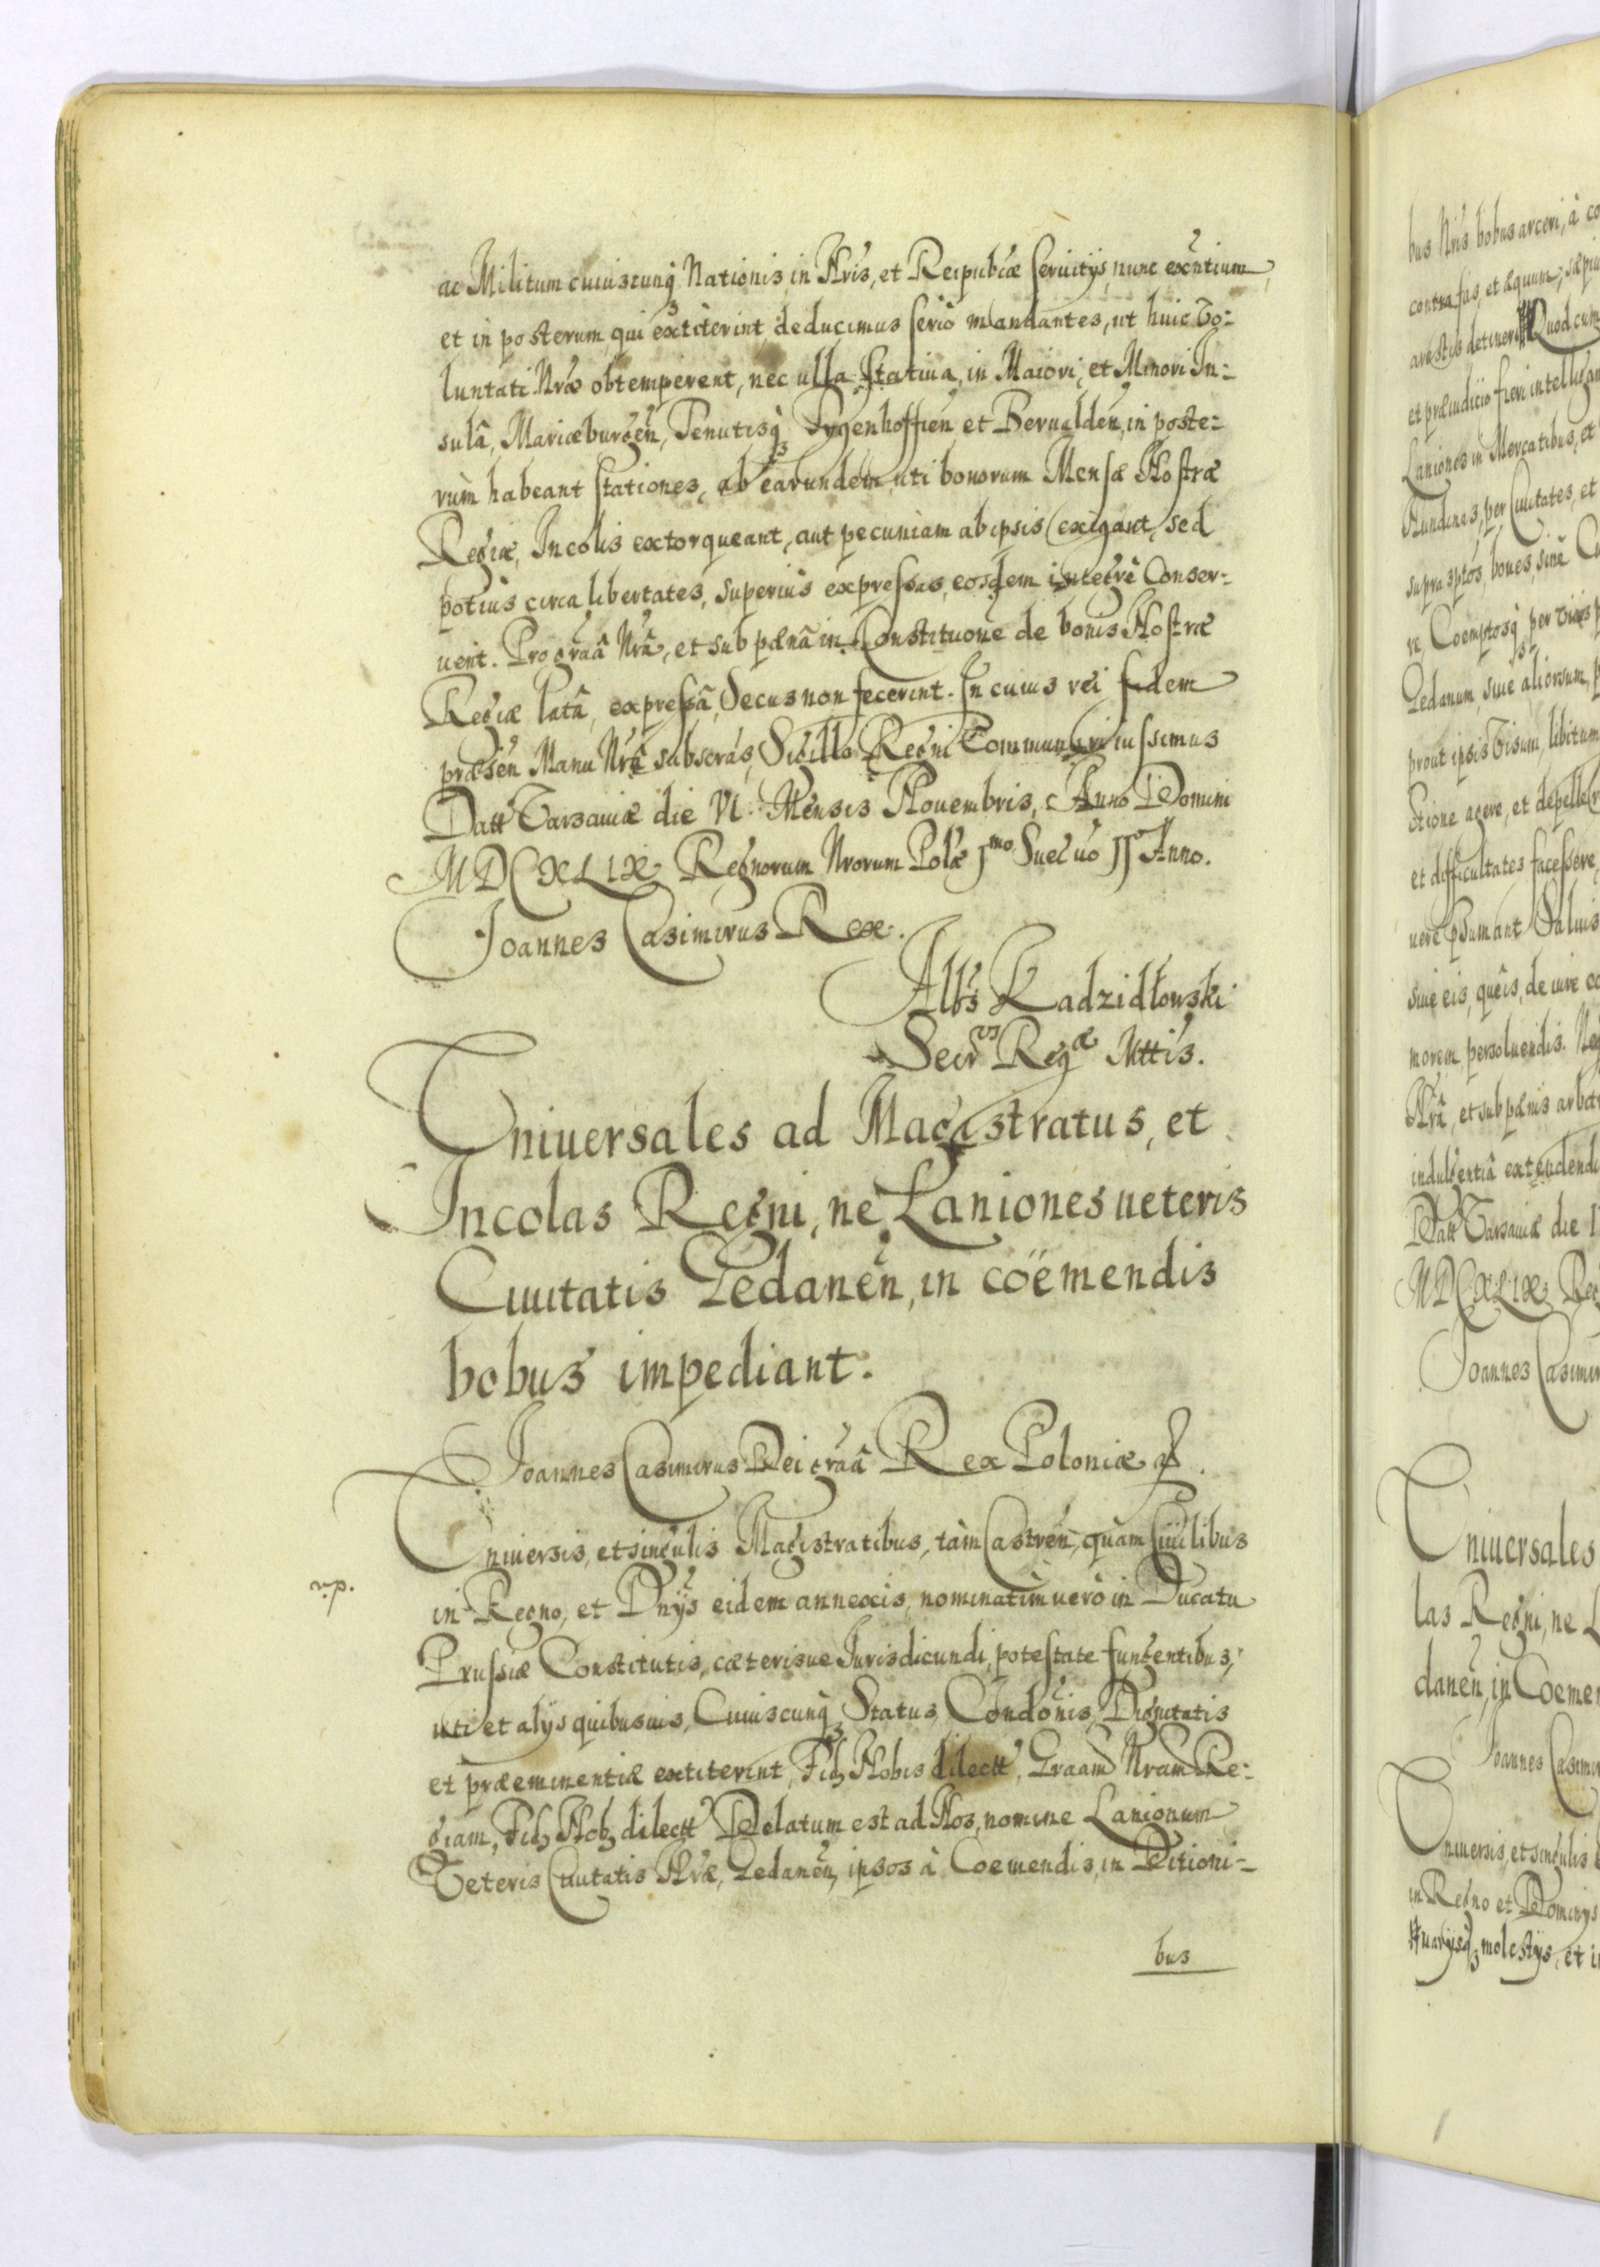 ac Militum cuiuscunq Nationis, in Nris, et Reipubcæ seruitijs, nunc exntium,
et in posterum qui extiterint, deducimus seriò mandantes, ut huic Vo:
luntati Nræ obtemperent, nec ulla Statiua, in Maiori, et Minori In:
sulâ, Mariæburgen, Tenutisq Tygenhoffien, et Berualden, in poste:
rùm habeant stationes, ab earundem, uti bonorum Mensæ Nostræ
Regiæ, Incolis extorqueant, aut pecuniam ab ipsis exigant, sed
potius circa libertates, superius expressas, eosdem integrè Conser:
uent. Pro graâ Nrâ, et sub pænâ in Constituone de bonis Nostræ
Regiæ latâ, expressâ, Secus non fecerint. In cuius rei fidem
præsen Manu Nrâ subscras, Sigillo Regni Communiri iussimus
Datt Varsauiæ die VI. Mensis Nouembris, Anno Domini
MDCXLIX. Regnorum Nrorum Polæ Imo Suec uò II Anno.
Joannes Casimirus Rex.
Albs Kadzidłowski
Secrus Regæ Mttis.
Vniuersales ad Magistratus, et
Incolas Regni, ne Laniones ueteris
Ciuitatis Gedanen, in coëmendis
bobus impediant.
Joannes Casimirus Dei graâ Rex Poloniæ
Vniuersis, et singulis Magistratibus, tàm Castren, quàm Ciuilibus
np.
in Regno, et Dnijs eidem annexis, nominatìm uerò in Ducatu
Prussiæ Constitutis, cæterisue Jurisdicundi, potestate fungentibus,
uti et alijs quibusuis, Cuiuscunq Status, Condonis, Dignitatis
et præeminentiæ extiterint, Fid Nobis dilectt, Graam Nram Re:
giam, Fid Nob dilectt Delatum est ad Nos, nomine Lanionum
Veteris Ciuitatis Nræ, Gedanen, ipsos à Coemendis, in Ditioni:
bus
bus Nris bobus arceri, à co
contra fas, et æquum, sæpiu
arestis detineri Quod cum
et præiudicio fieri intelligam
Laniones in Mercatibus, et
Nundinis, per Ciuitates, et
supra sptos, boues, sine Cu
re, Coemptosq, per vias p
Gedanum, siue aliorsum, p
prout ipsis visum, libitum
ctione agere, et depellere
et difficultates facessere,
uere psumant Saluis
siue eis, queis, de iure co
morem persoluendis. Neq
Nrâ, et sub pænis arbitr
indulgentiâ extendendi
Datt Varsauiæ die I
MDCXLIX. Reg
Joannes Casimir
Vniuersales
las Regni, ne L
danen, in Coemen
Joannes Casimir
Vniuersis, et singulis
in Regno et Dominijs
uarijsq molestijs, et i